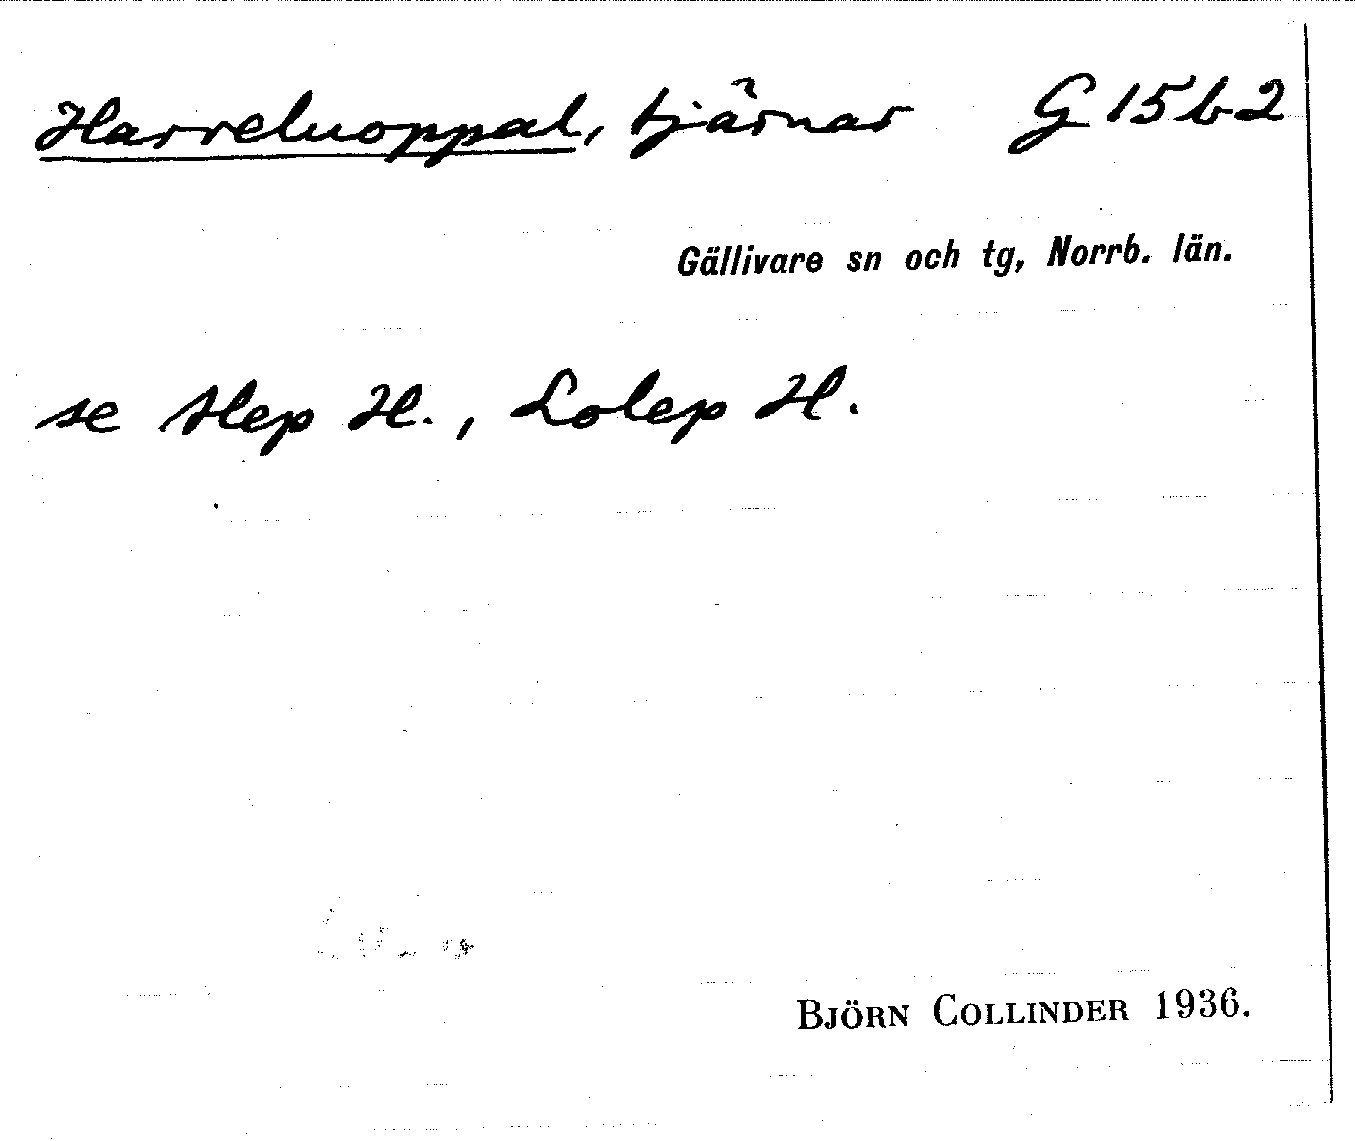 Harreluoppal, tjärnar G 15 b 2
Gällivare sn och tg, Norrb. län.
se Alep H., Lolep H.
BJÖRN COLLINDER 1936.